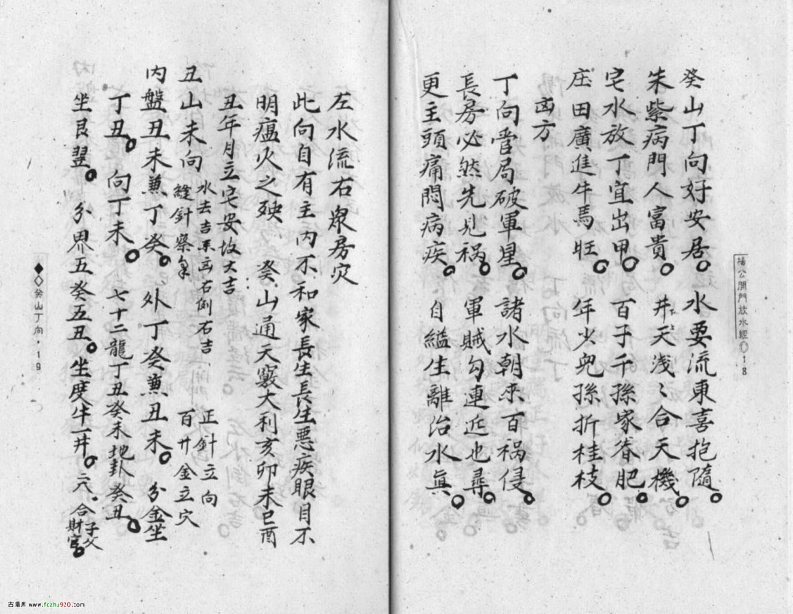 楊公開門放水經 18
癸山丁向好安居 水要流東喜抱隨
朱紫病門人富貴 井天淺〻合天機
宅水放丁宜出甲 百子千孫家眷肥
庄田廣進牛馬旺 年少兒孫折桂枝
凶方
丁向當局破軍星 諸水朝來百禍侵
長房必然先見禍 軍賊勾連近也尋
更主頭痛悶病疾 自縊生離治水真
左水流右眾房災
此向自有主內不和家長生長生惡疾眼目不
明瘟火之殃 癸山通天竅大利亥卯未巳酉
丑年月立宅安坟大吉
丑山未向 水去吉來凶右倒右吉 正針立向
縫針 百廿金立穴
內盤丑未兼丁癸 外丁癸兼丑未 分金坐
丁丑 向丁未 七十二龍丁丑癸未地卦癸丑
坐艮 分界五癸五丑 坐度牛井 合子父財官
癸山丁向 19
古易库 www.fczhu920.com